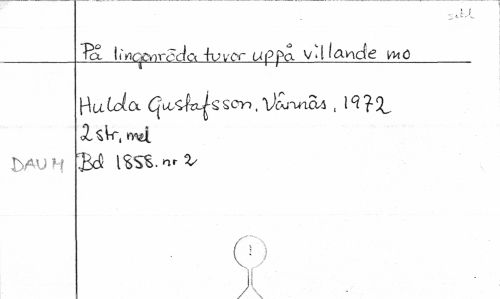 På lingonröda tuvor uppå villande mo
Hulda Gustafsson, Vännäs, 1972
2 str, mel
DAUM Bd 1858. nr 2